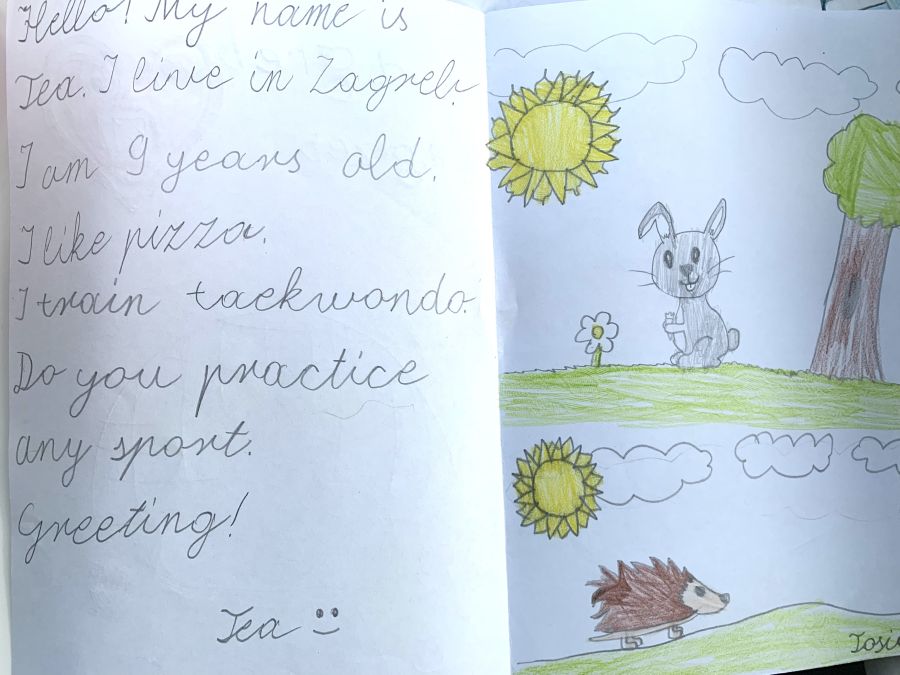 Hello! My name is
Tea. I live in Zagreb.
I am 9 years old.
I like pizza.
I train taekwondo.
Do you practice
any sport.
Greeting!
Tea